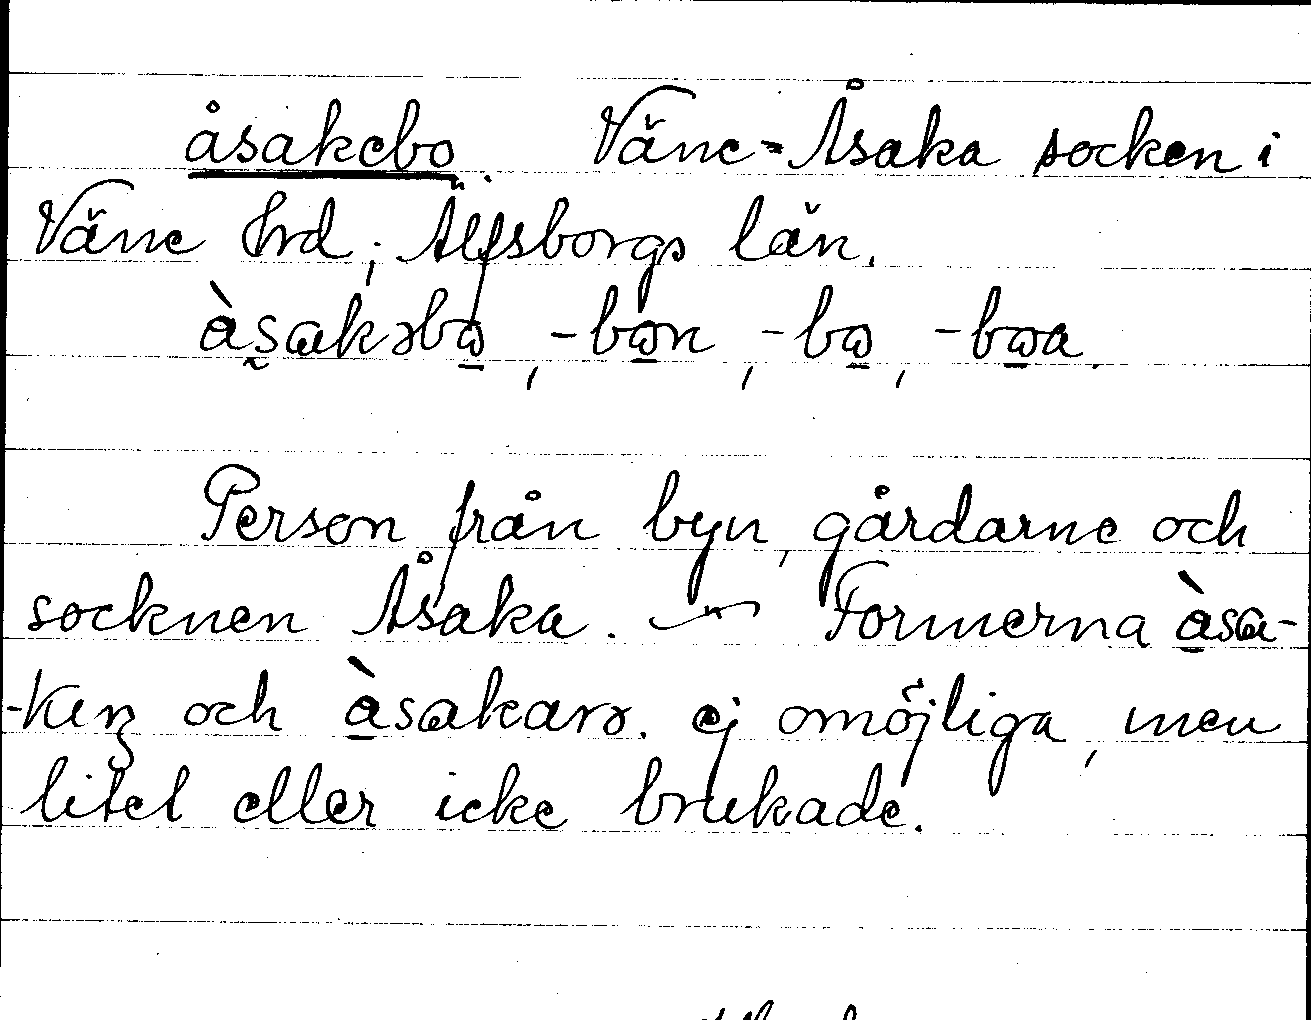 åsakebo. Väne-Åsaka socken i
Väne hrd, Älfsborgs län.
àsakəbω, -bωn, -bω, -bωa.
Person från byn, gårdarne och
socknen Åsaka. — Formerna àsa-
-ken och àsakarə. ej omöjliga, men
litet eller icke brukade.